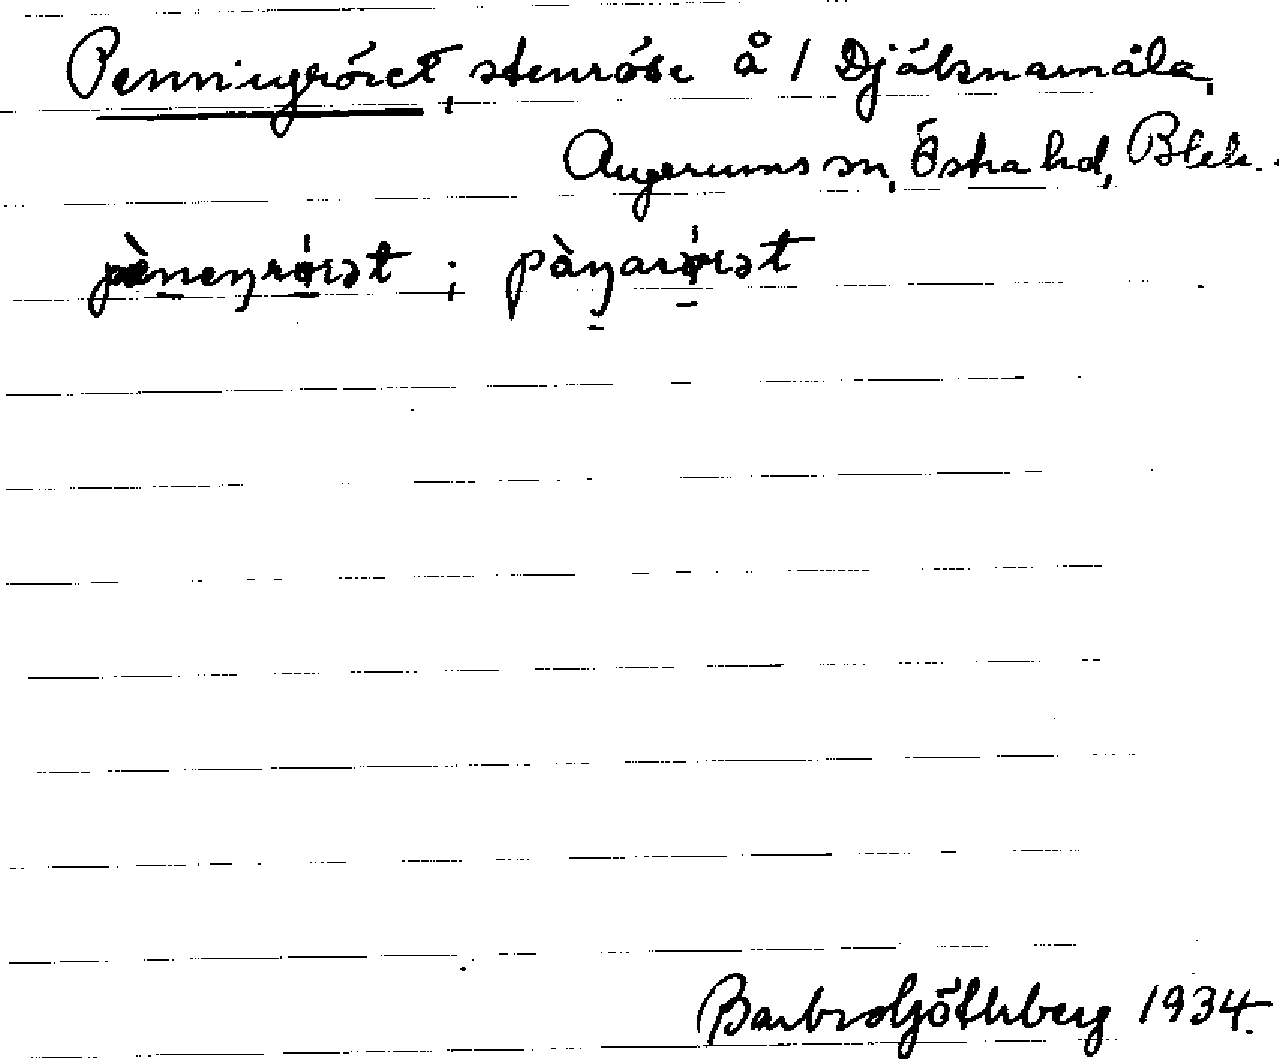 Penningröset, stenröse å 1 Djäknamåla,
Augerums sn, Östra hd, Blek.
pèneŋrø̀sət ; pàŋarø̀sət
Barbro Göthberg 1934.